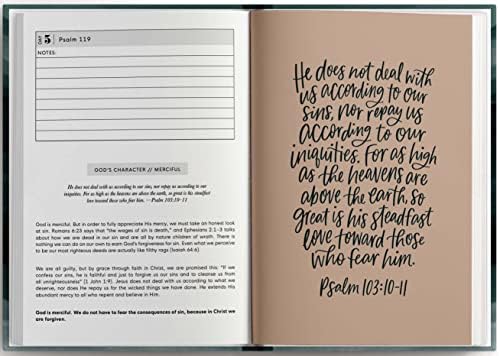 DAY 5 Psalm 119
NOTES:
GOD'S CHARACTER // MERCIFUL
He does not deal with us according to our sins, nor repay us according to our
iniquities. For as high as the heavens are above the earth, so great is his steadfast
love toward those who fear him. —Psalm 103:10–11
God is merciful. But in order to fully appreciate His mercy, we must take an honest look
at sin. Romans 6:23 says that "the wages of sin is death," and Ephesians 2:1–3 talks
about how we are dead in our sin and are all by nature children of wrath. There is
nothing we can do on our own to earn God's forgiveness for sin. Even what we perceive
to be our most righteous deeds are actually like filthy rags (Isaiah 64:6).
We are all guilty, but by grace through faith in Christ, we are promised this: "If we
confess our sins, he is faithful and just to forgive us our sins and to cleanse us from
all unrighteousness" (1 John 1:9). Jesus does not deal with us according to what we
deserve, nor does He repay us for the wicked things we have done. He extends His
abundant mercy to all who repent and believe in Him.
God is merciful. We do not have to fear the consequences of sin, because in Christ we
are forgiven.
He does not deal with
us according to our
sins, nor repay us
according to our
iniquities. For as high
as the heavens are
above the earth, so
great is his steadfast
love toward those
who fear him.
Psalm 103:10-11